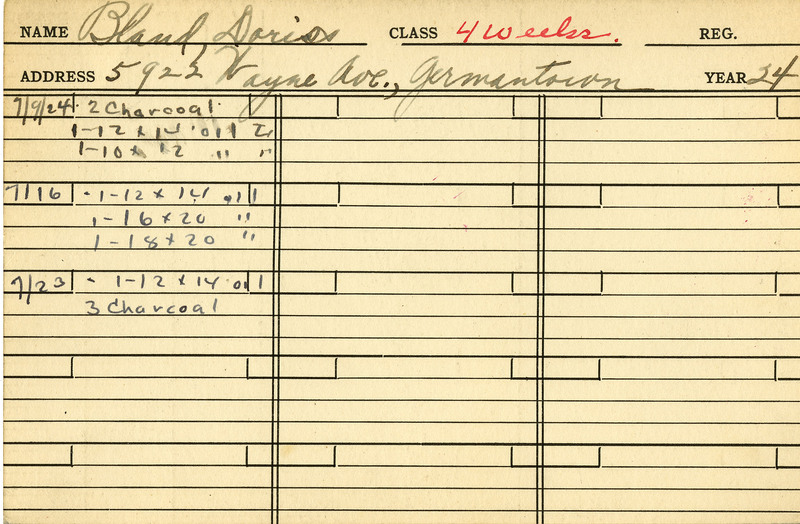 NAME Bland, Doriss CLASS 4 weeks. REG.
ADDRESS 5922 Wayne Ave., Germantown YEAR 24
7/9/24 · 2 Charcoal
1-12 x 14 oil
1-10 x 12 "
7/16 - 1-12 x 14 oil
1-16 x 20 "
1-18 x 20 "
7/23 - 1-12 x 14 oil
3 Charcoal